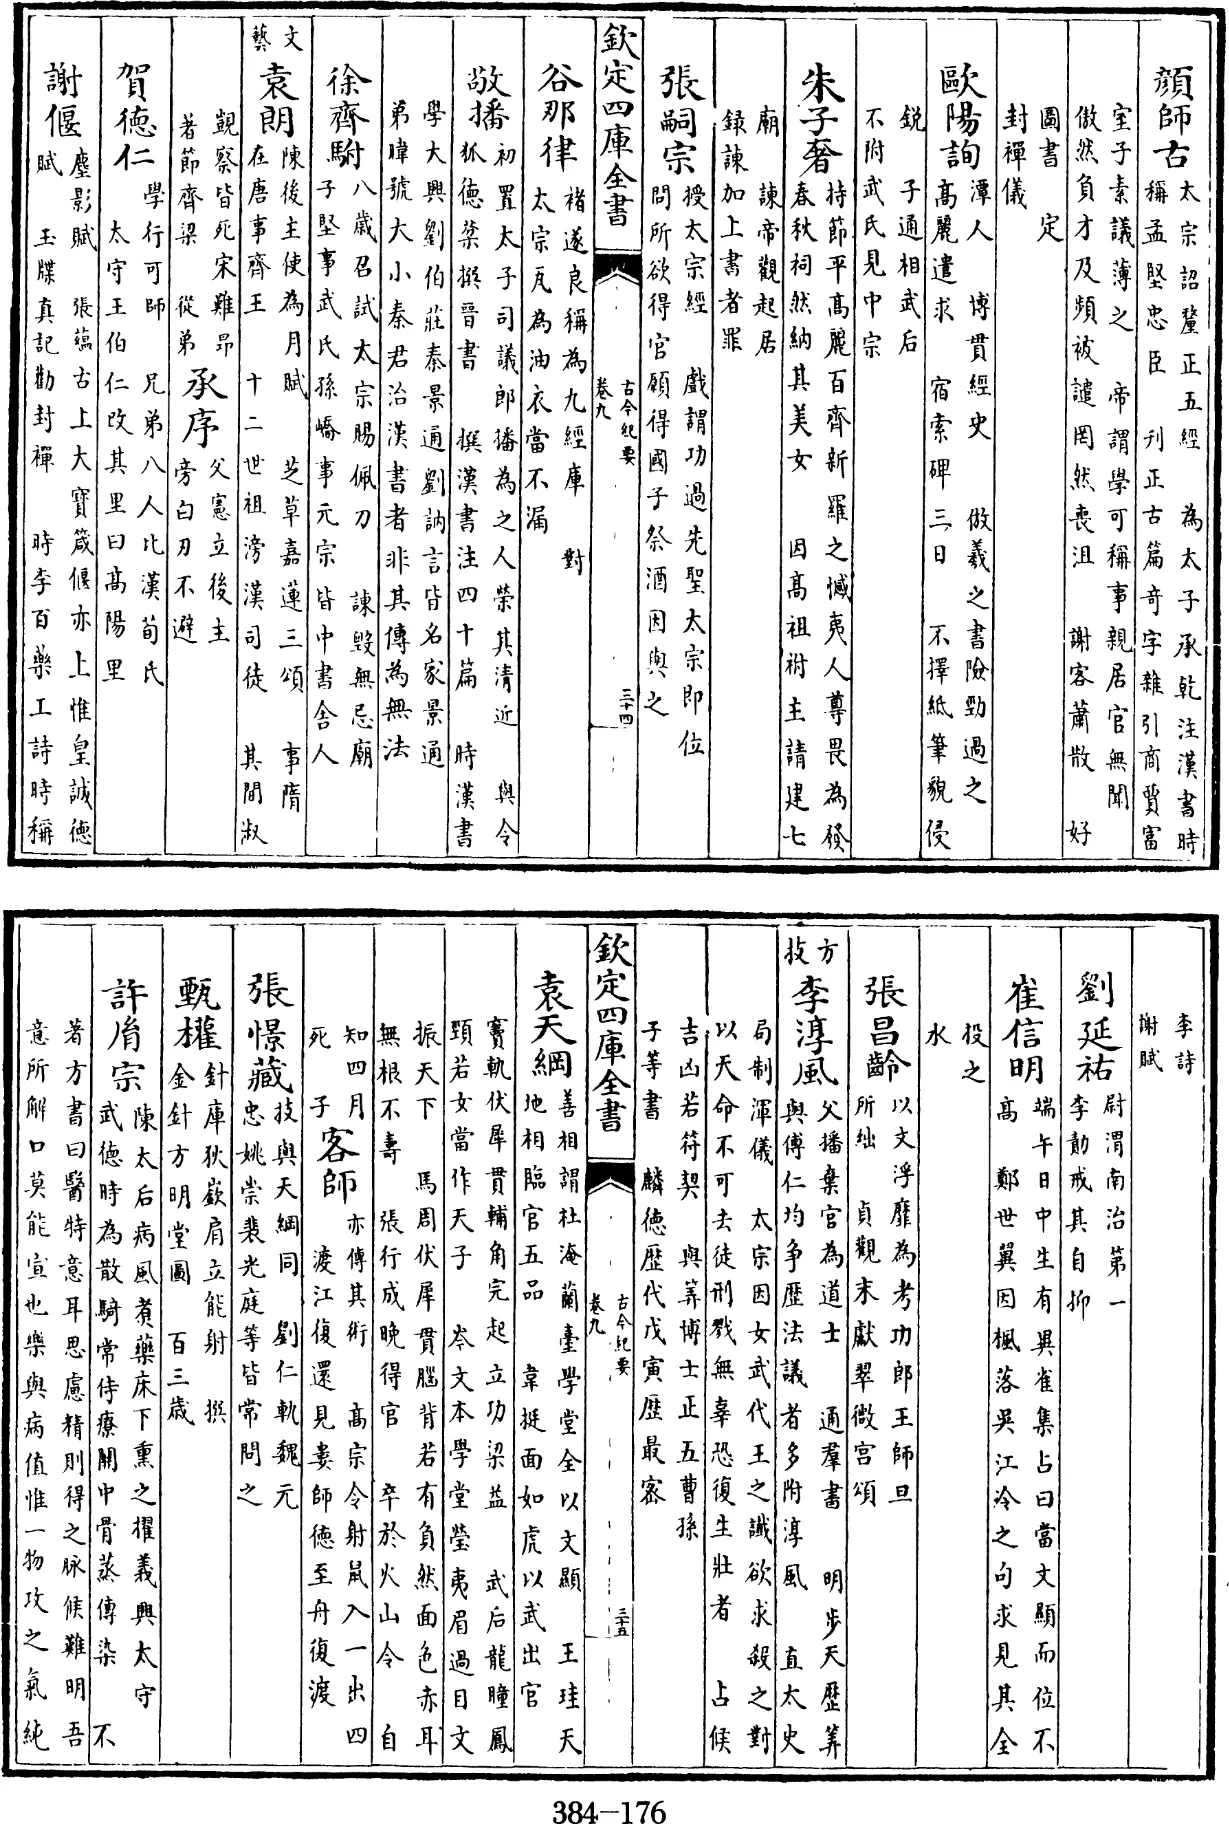 顔師古太宗詔釐正五經 為太子承乾注漢書時
稱孟堅忠臣 刋正古篇奇字雜引商賈富
室子素議薄之 帝謂學可稱事親居官無聞
傲然負才及頻被譴罔然喪沮 謝客蕭散 好
圖書 定
封禪儀
歐陽詢潭人 博貫經史 倣羲之書險勁過之
髙麗遣求 宿索碑三日 不擇紙筆貌侵
鋭 子通相武后
不附武氏見中宗
朱子奢持節平髙麗百齊新羅之憾夷人尊畏為發
春秋祠然納其美女 因髙祖祔主請建七
廟 諫帝觀起居
録諫加上書者罪
張嗣宗授太宗經 戲謂功過先聖太宗即位
問所欲得官願得國子祭酒因與之
欽定四庫全書
古今紀要
卷九
三十四
谷那律褚遂良稱為九經庫 對
太宗瓦為油衣當不漏
敬播初置太子司議郎播為之人榮其清近 與令
狐德棻撰晉書 撰漢書注四十篇 時漢書
學大興劉伯莊秦景通劉訥言皆名家景通
弟暐號大小秦君治漢書者非其傳為無法
徐齊駙八歲召試太宗賜佩刀 諫毁無忌廟
子堅事武氏孫嶠事元宗皆中書舎人
文藝
袁朗陳後主使為月賦 芝草嘉蓮三頌 事隋
在唐事齊王 十二世祖滂漢司徒 其間淑
覬察皆死宋難昂
著節齊梁 從弟承序父憲立後主
旁白刃不避
賀德仁學行可師 兄弟八人比漢荀氏
太守王伯仁改其里曰髙陽里
謝偃塵影賦 張藴古上大寳箴偃亦上惟皇誡德
賦 玉牒真記勸封禪 時李百藥工詩時稱
李詩
謝賦
劉延祐尉渭南治第一
李勣戒其自抑
崔信明端午日中生有異雀集占曰當文顯而位不
髙 鄭世翼因楓落吳江冷之句求見其全
投之
水
張昌齡以文浮靡為考功郎王師旦
所絀 貞觀末獻翠微宫頌
方技
李淳風父播棄官為道士 通羣書 明步天歴筭
與傅仁均争歴法議者多附淳風 直太史
局制渾儀 太宗因女武代王之讖欲求殺之對
以天命不可去徒刑戮無辜恐復生壯者 占候
吉凶若符契 與筭博士正五曹孫
子等書 麟德歴代戊寅歴最宻
欽定四庫全書
古今紀要
卷九
三十五
袁天綱善相謂杜淹蘭臺學堂全以文顯 王珪天
地相臨官五品 韋挺面如虎以武出官
竇軌伏犀貫輔角完起立功梁益 武后龍瞳鳳
頸若女當作天子 岑文本學堂瑩夷眉過目文
振天下 馬周伏犀貫腦背若有負然面色赤耳
無根不夀 張行成晚得官 卒於火山令 自
知四月 髙宗令射鼠入一出四
死 子客師亦傳其術
渡江復還見婁師德至舟復渡
張憬藏技與天綱同 劉仁軌魏元
忠姚崇裴光庭等皆常問之
甄權針庫狄嶔肩立能射 撰
金針方明堂圖 百三歲
許胤宗陳太后病風煮藥床下熏之擢義興太守
武德時為散騎常侍療關中骨蒸傳染 不
著方書曰醫特意耳思慮精則得之脉候難明吾
意所解口莫能宣也藥與病值惟一物攻之氣純
384—176